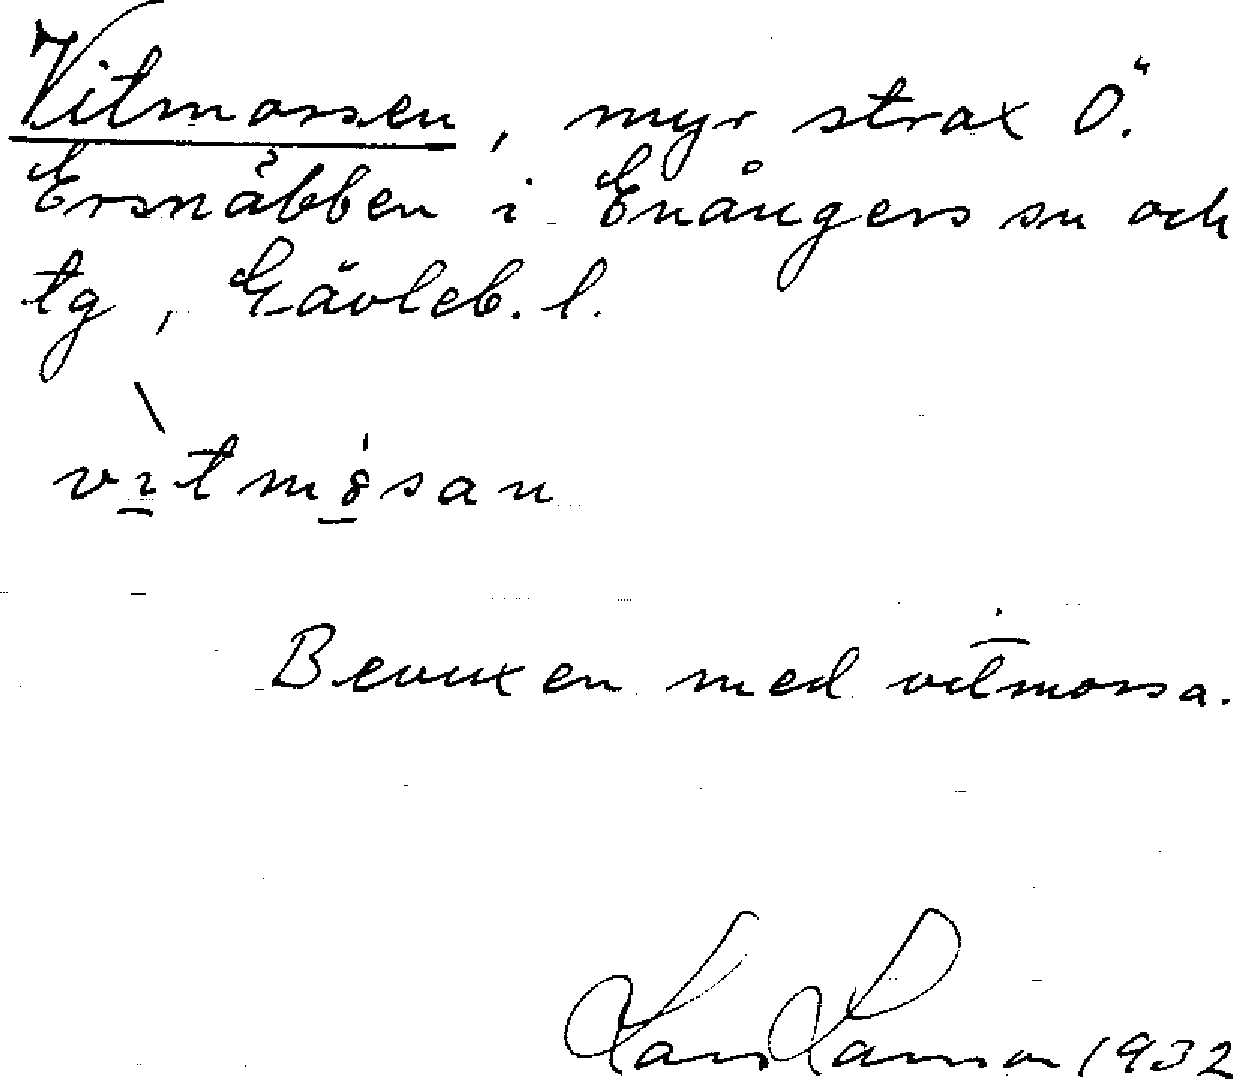 Vitmossen, myr strax Ö.
Ersnäbben i Enångers sn och
tg, Gävleb. l.
vìtmósan
Bevuxen med vitmossa.
Lars Larsson 1932